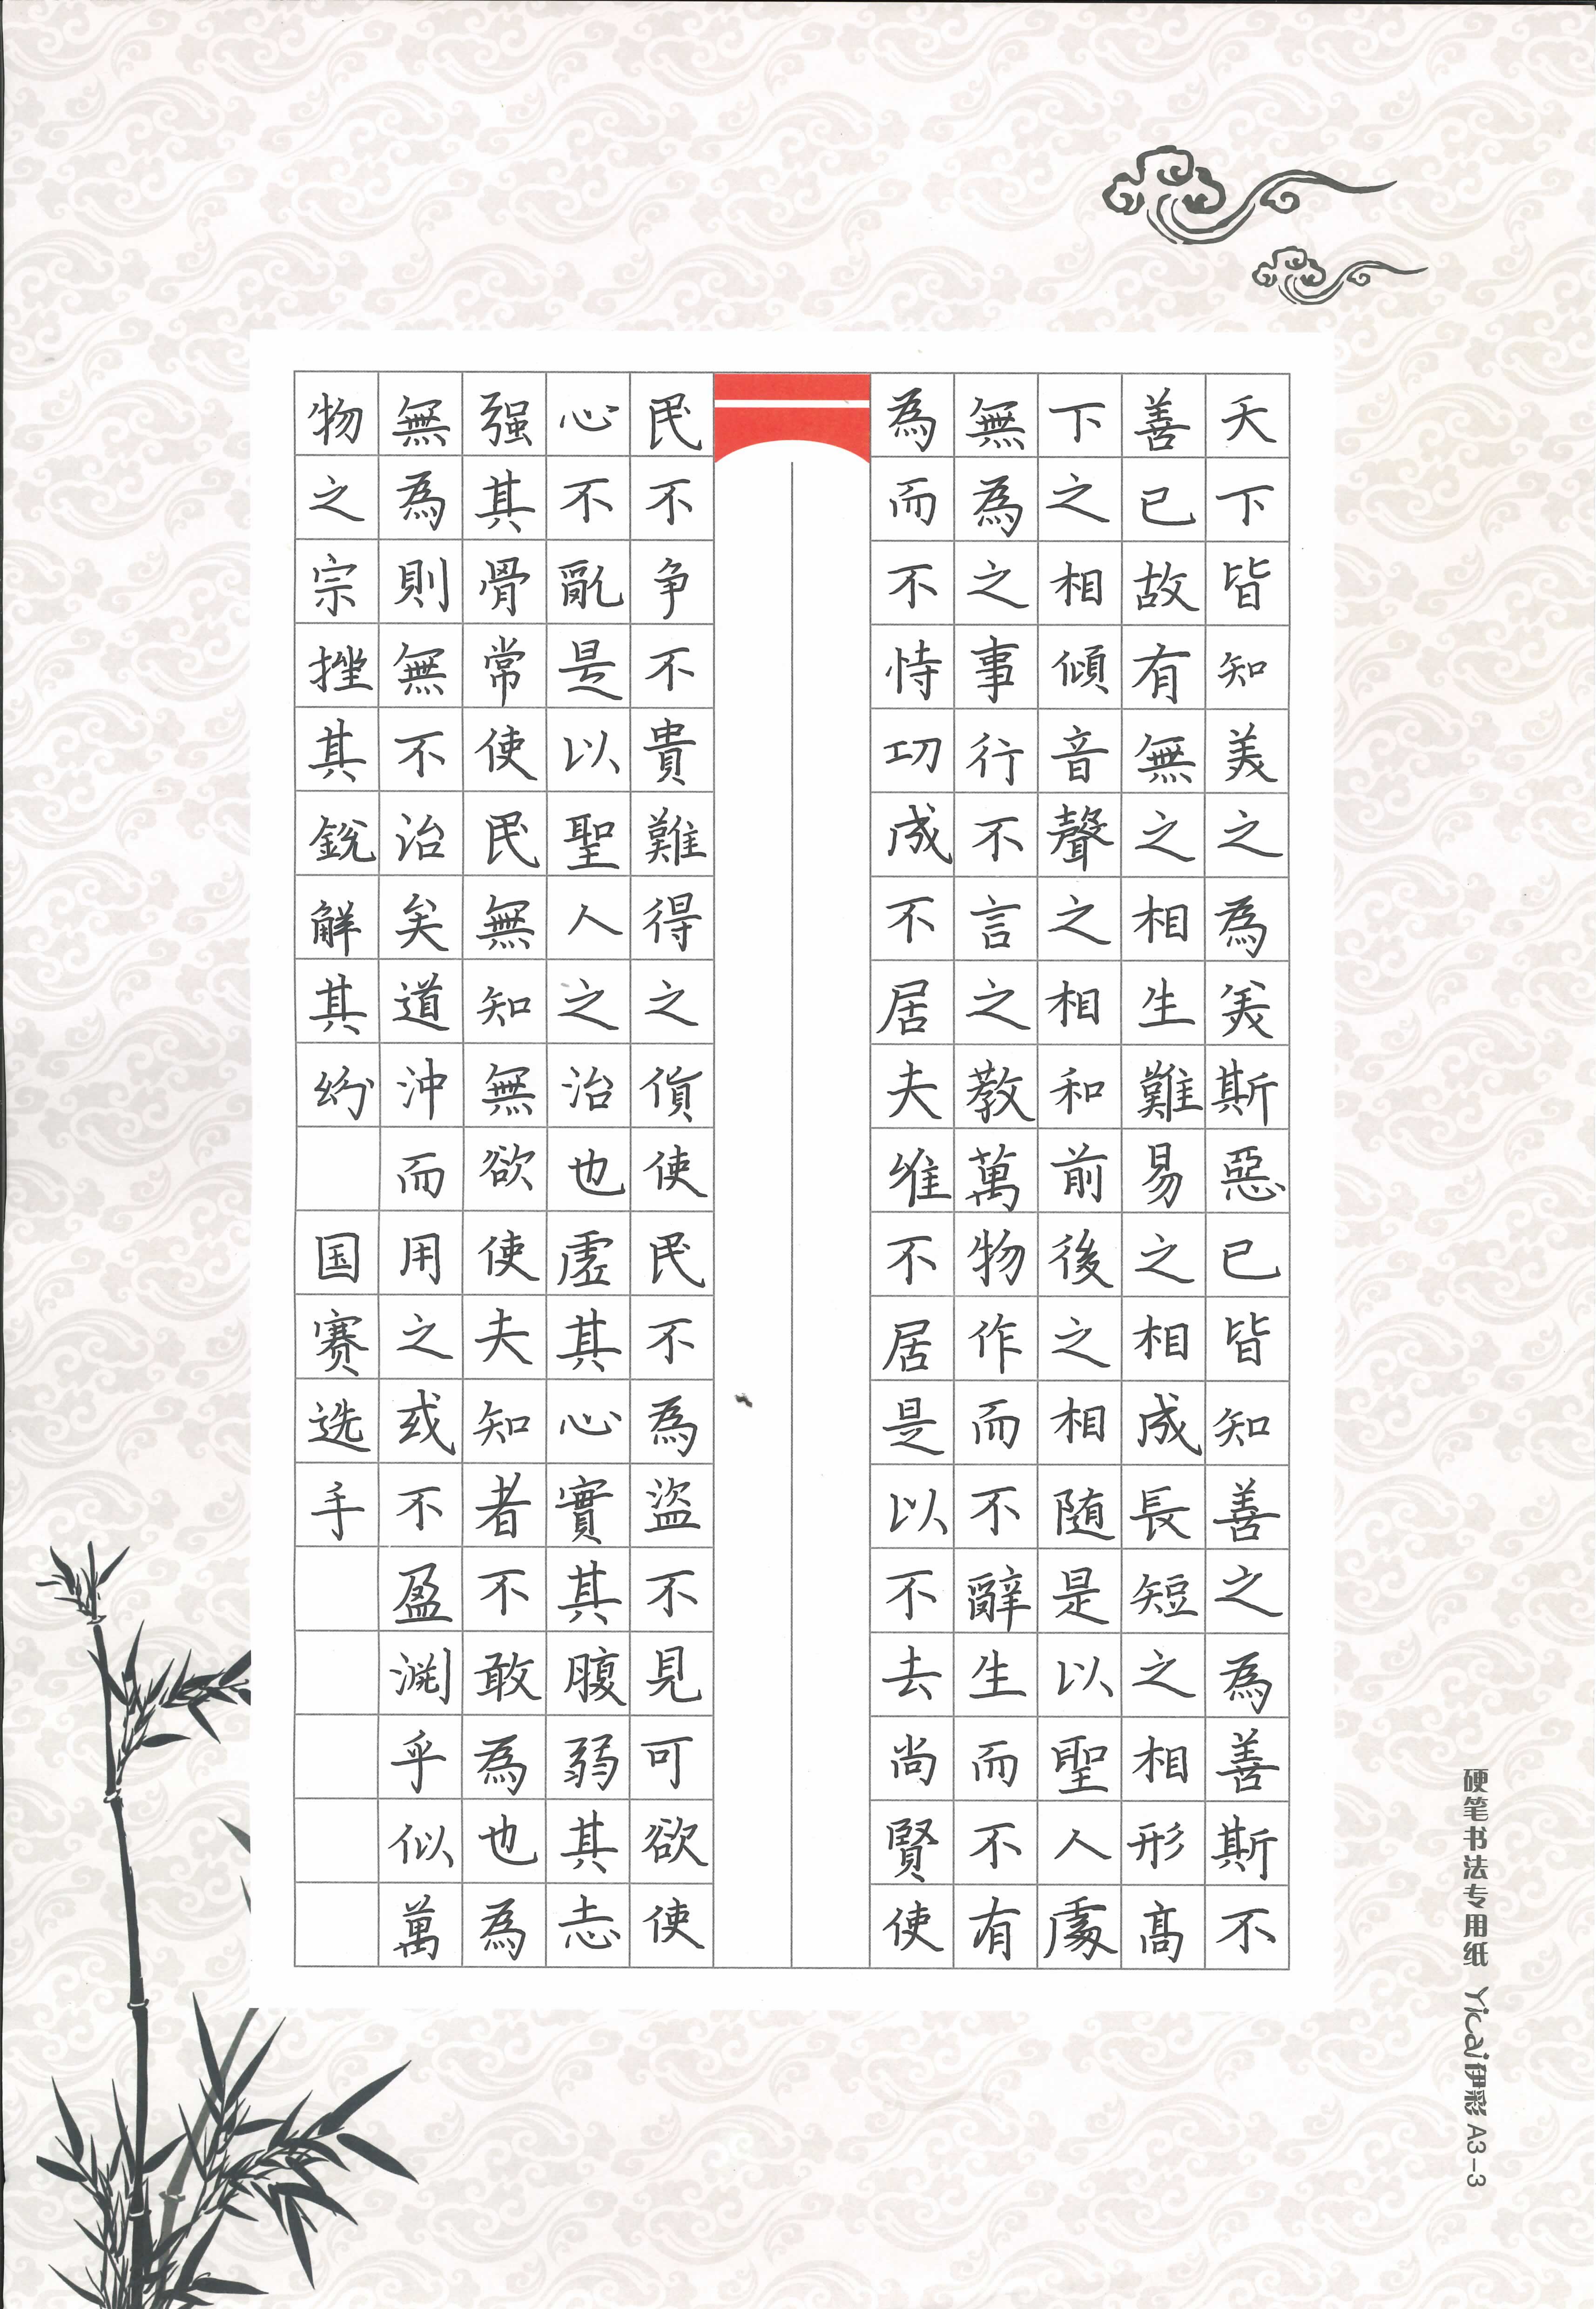 天下皆知美之為美斯惡已皆知善之為善斯不
善已故有無之相生難易之相成長短之相形高
下之相傾音聲之相和前後之相随是以聖人處
無為之事行不言之教萬物作而不辭生而不有
為而不恃功成不居夫唯不居是以不去尚賢使
民不争不貴難得之貨使民不為盜不見可欲使
心不亂是以聖人之治也虛其心實其腹弱其志
强其骨常使民無知無欲使夫知者不敢為也為
無為則無不治矣道沖而用之或不盈淵乎似萬
物之宗挫其銳解其紛 国赛选手
硬笔书法专用纸 Yicai伊彩 A3-3